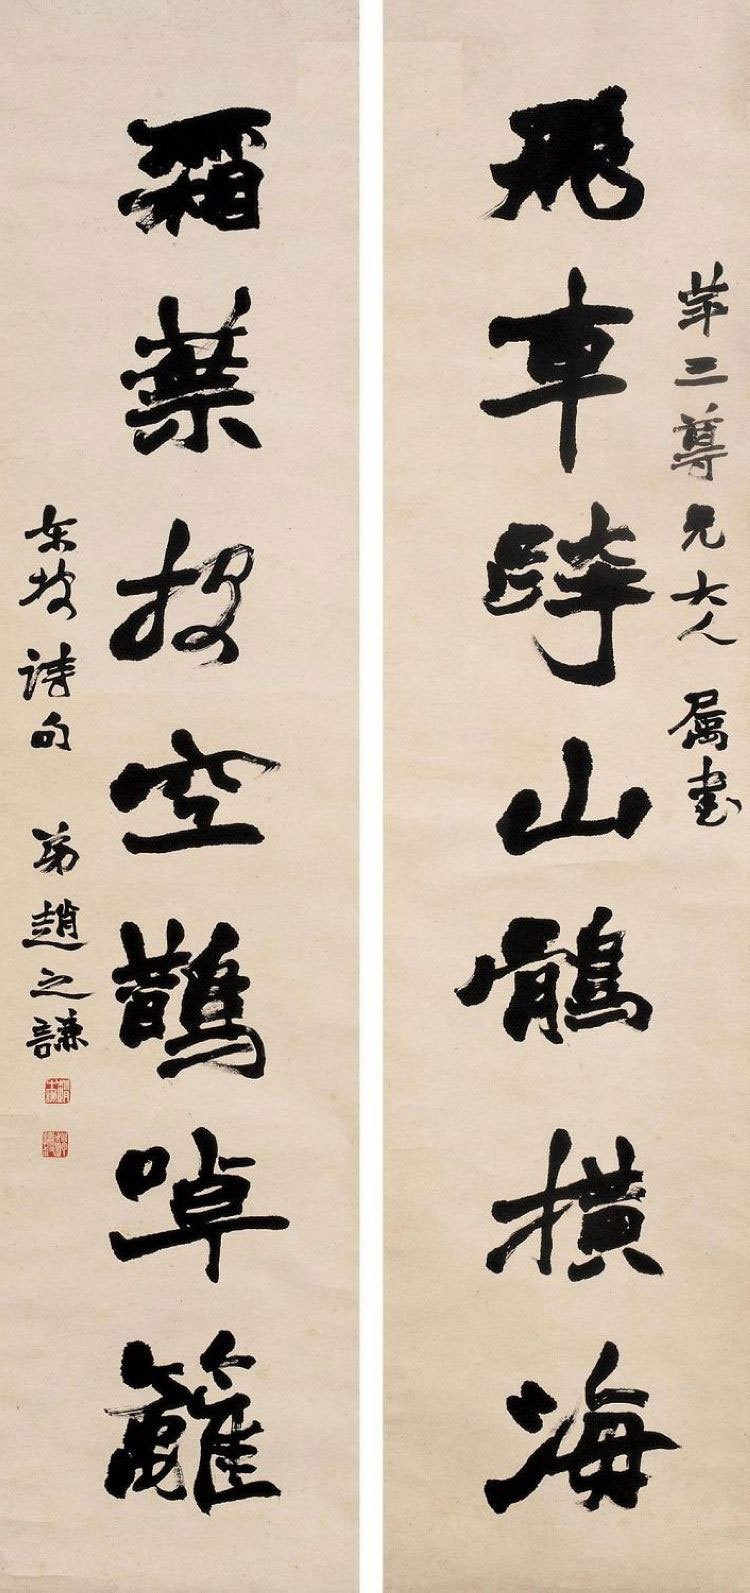 飛車跨山鶻橫海
三尊兄大人 属書
霜葉投空鵲啅籬
東坡詩句 弟趙之謙